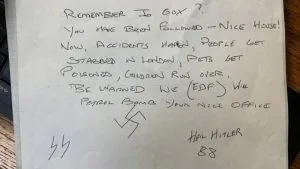 REMEMBER JO COX?
YOU HAVE BEEN FOLLOWED – NICE HOUSE!
NOW, ACCIDENTS HAPPEN, PEOPLE GET
STABBED IN LONDON, PETS GET
POISONED, CHILDREN RUN OVER.
BE WARNED WE (EDF) WILL
PETROL BOMB YOUR NICE OFFICE
HEIL HITLER
88